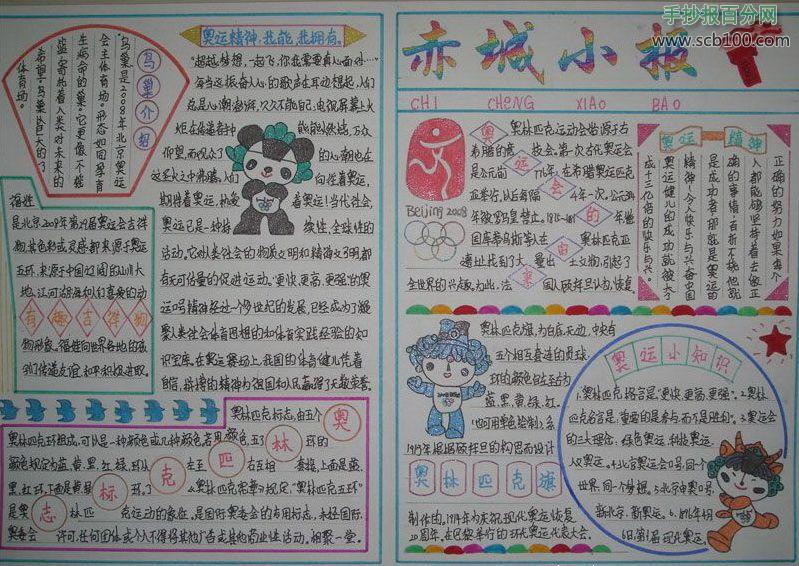 手抄报百分网
www.scb100.com
鸟巢介绍
"鸟巢是2008年北京奥运
会主体育场。形态如同孕育
生命的"巢"。它更像一个摇
篮,寄托着人类对未来的
希望。
体育场。
福娃
是北京2008年第29届奥运会吉祥
物,其色彩或灵感都来源于奥运
五环、来源于中国辽阔的山川大
地、江河湖海和人们喜爱的动
有趣吉祥物
物形象。福娃向世界各地的孩
们传递友谊、和平积极进取。
奥运精神,我能,我拥有。
"超越梦想,一起飞,你我需要真心面对…"
每当这振奋人心的歌声在耳边想起,人们
总是心潮澎湃,久久不能自已;电视屏幕上火
炬在传递着种
能能以燃烧,万众
仰望,而观众了
的心潮也在
这圣火上沸腾。人们
向往着奥运、
期待着奥运、热爱
着奥运!当代社会,
奥运已是一种持
续性、全球性的
活动,它对人类社会的物质文明和精神文明都
有无可估量的促进运动。"更快、更高、更强"的奥
运口号精神经过一个多世纪的发展,已经成为了凝
聚人类社会体育思想的和体育实践经验的知
识宝库。在奥运赛场上,我国的体育健儿凭着
自信、拼搏的精神为祖国和人民赢得了无数荣誉。
奥林匹克标志
奥林匹克标志,由五个
奥林匹克环组成,可以是一种颜色或几种颜色,若用
颜色规定为蓝、黄、黑、红、绿,环从
左至
右互相
套接,上面是蓝、
黑、红环,下面是黄
环。
《奥林匹克宪章》规定,"奥林匹克五环"
是奥
林匹
克运动的象征,是国际奥委会的专用标志,未经国际
奥委会
许可,任何团体或个人不得将其他广告或其他商业性活动。相聚一堂。
赤城小报
CHI CHENG XIAO BAO
Beijing 2008
奥运会的由来
奥林匹克运动会始源于古
希腊的竞
技会。第一次古代奥运会
是公元前
776年,在希腊奥运匹克
亚举行,以后每隔
4年一次。公元394
年被罗马皇禁止。1875-1881
年德
国库蒂乌斯等人在
奥林匹克亚
遗址找到了大
量出
土文物,引起了
全世界的兴趣,为此,法
国人顾拜旦认为,恢复
奥运精神
正确的努力,如果每个
人都能够坚持着去做正
确的事情,百折不挠,他就
是成功者,那就是奥运的
精神!今天快乐与兴奋,中国
奥运健儿的成功就被放大了
成十三亿倍的快乐与兴。
奥林匹克旗,为白底无边,中央有
五个相互套连的员球
环的颜色自左至右为
蓝、黑、黄、绿、红,
(也可用单色绘制),系
1913年根据顾拜旦的构思而设计
奥林匹克旗
制作的,1914年为庆祝现代奥运恢复
20周年,在巴黎举行的环代奥运代表大会。
奥运小知识
1.奥林匹克格言是:"更快、更高、更强"。2.奥林
匹克名言是:"重要的是参与,而不是胜利"。3.奥运会
的三大理念:绿色奥运、科技奥运、
人文奥运。4.北京奥运会口号,同一个
世界,同一个梦想。5.北京申奥口号,
新北京、新奥运。6.1896年4月
6日,第1届现代奥运。